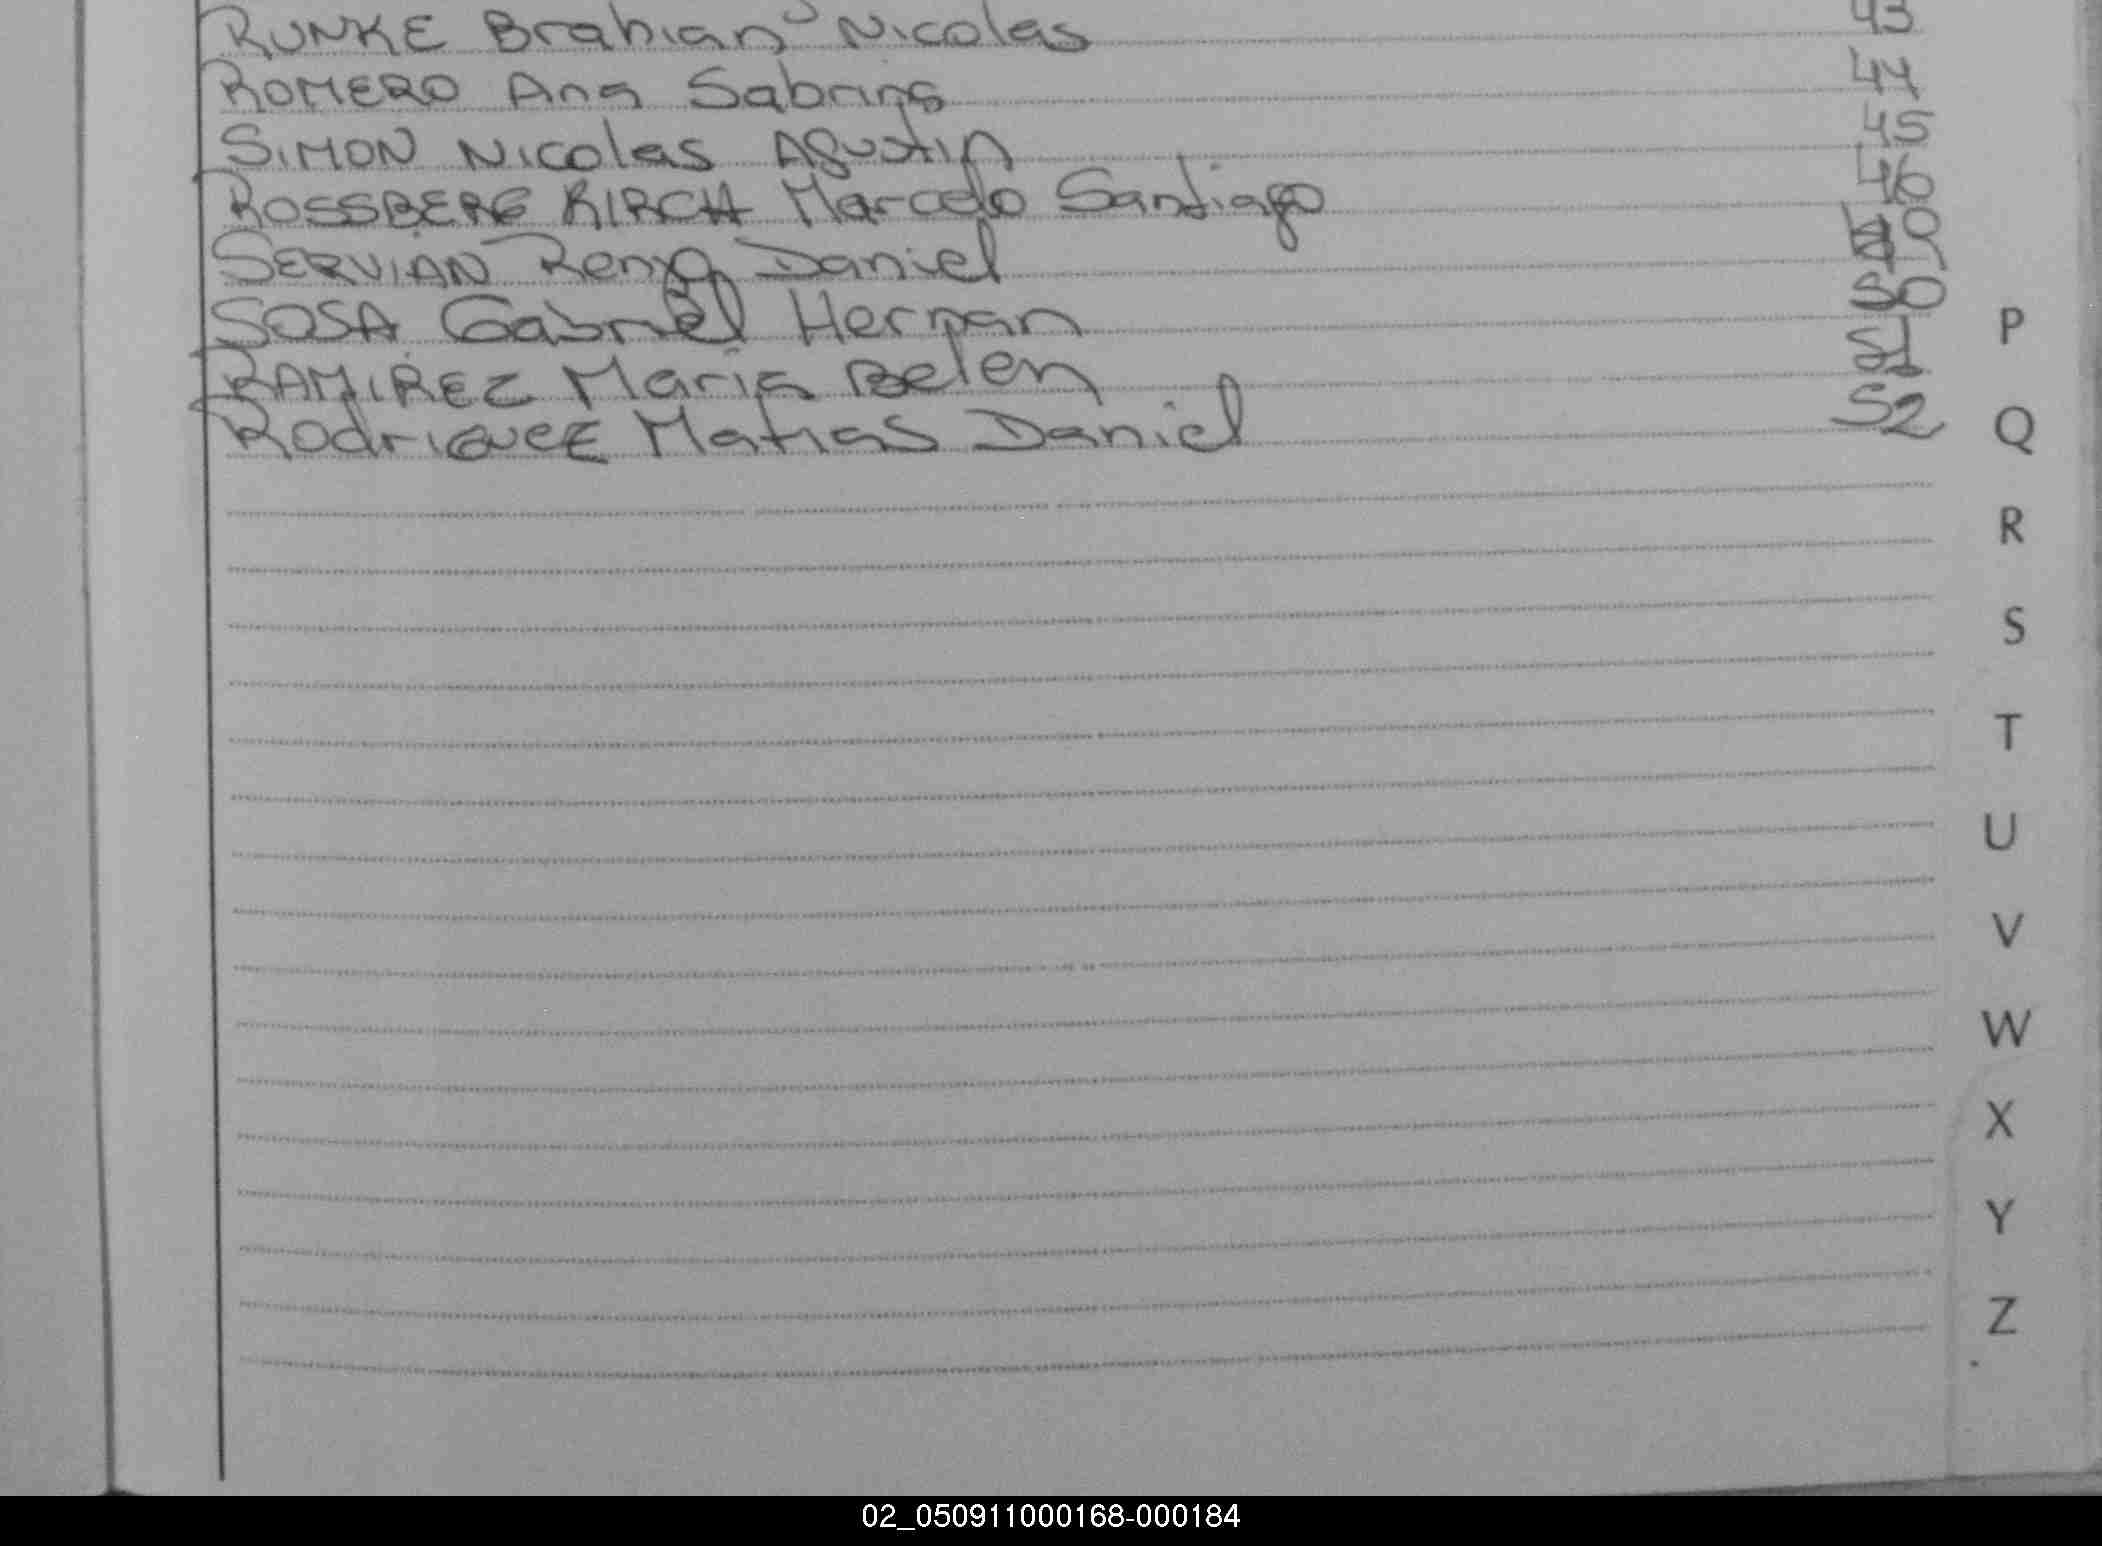 RUNKE Brahian Nicolas 43
ROMERO Ana Sabrina 44
SIMON Nicolas Agustin 45
ROSSBERG KIRCH Marcelo Santiago 46
SERVIAN Daniel 49
SOSA Gabriel Hernan 50
RAMIREZ Maria Belen 51
RodriGueZ Matias Daniel 52
P
Q
R
S
T
U
V
W
X
Y
Z
02_050911000168-000184